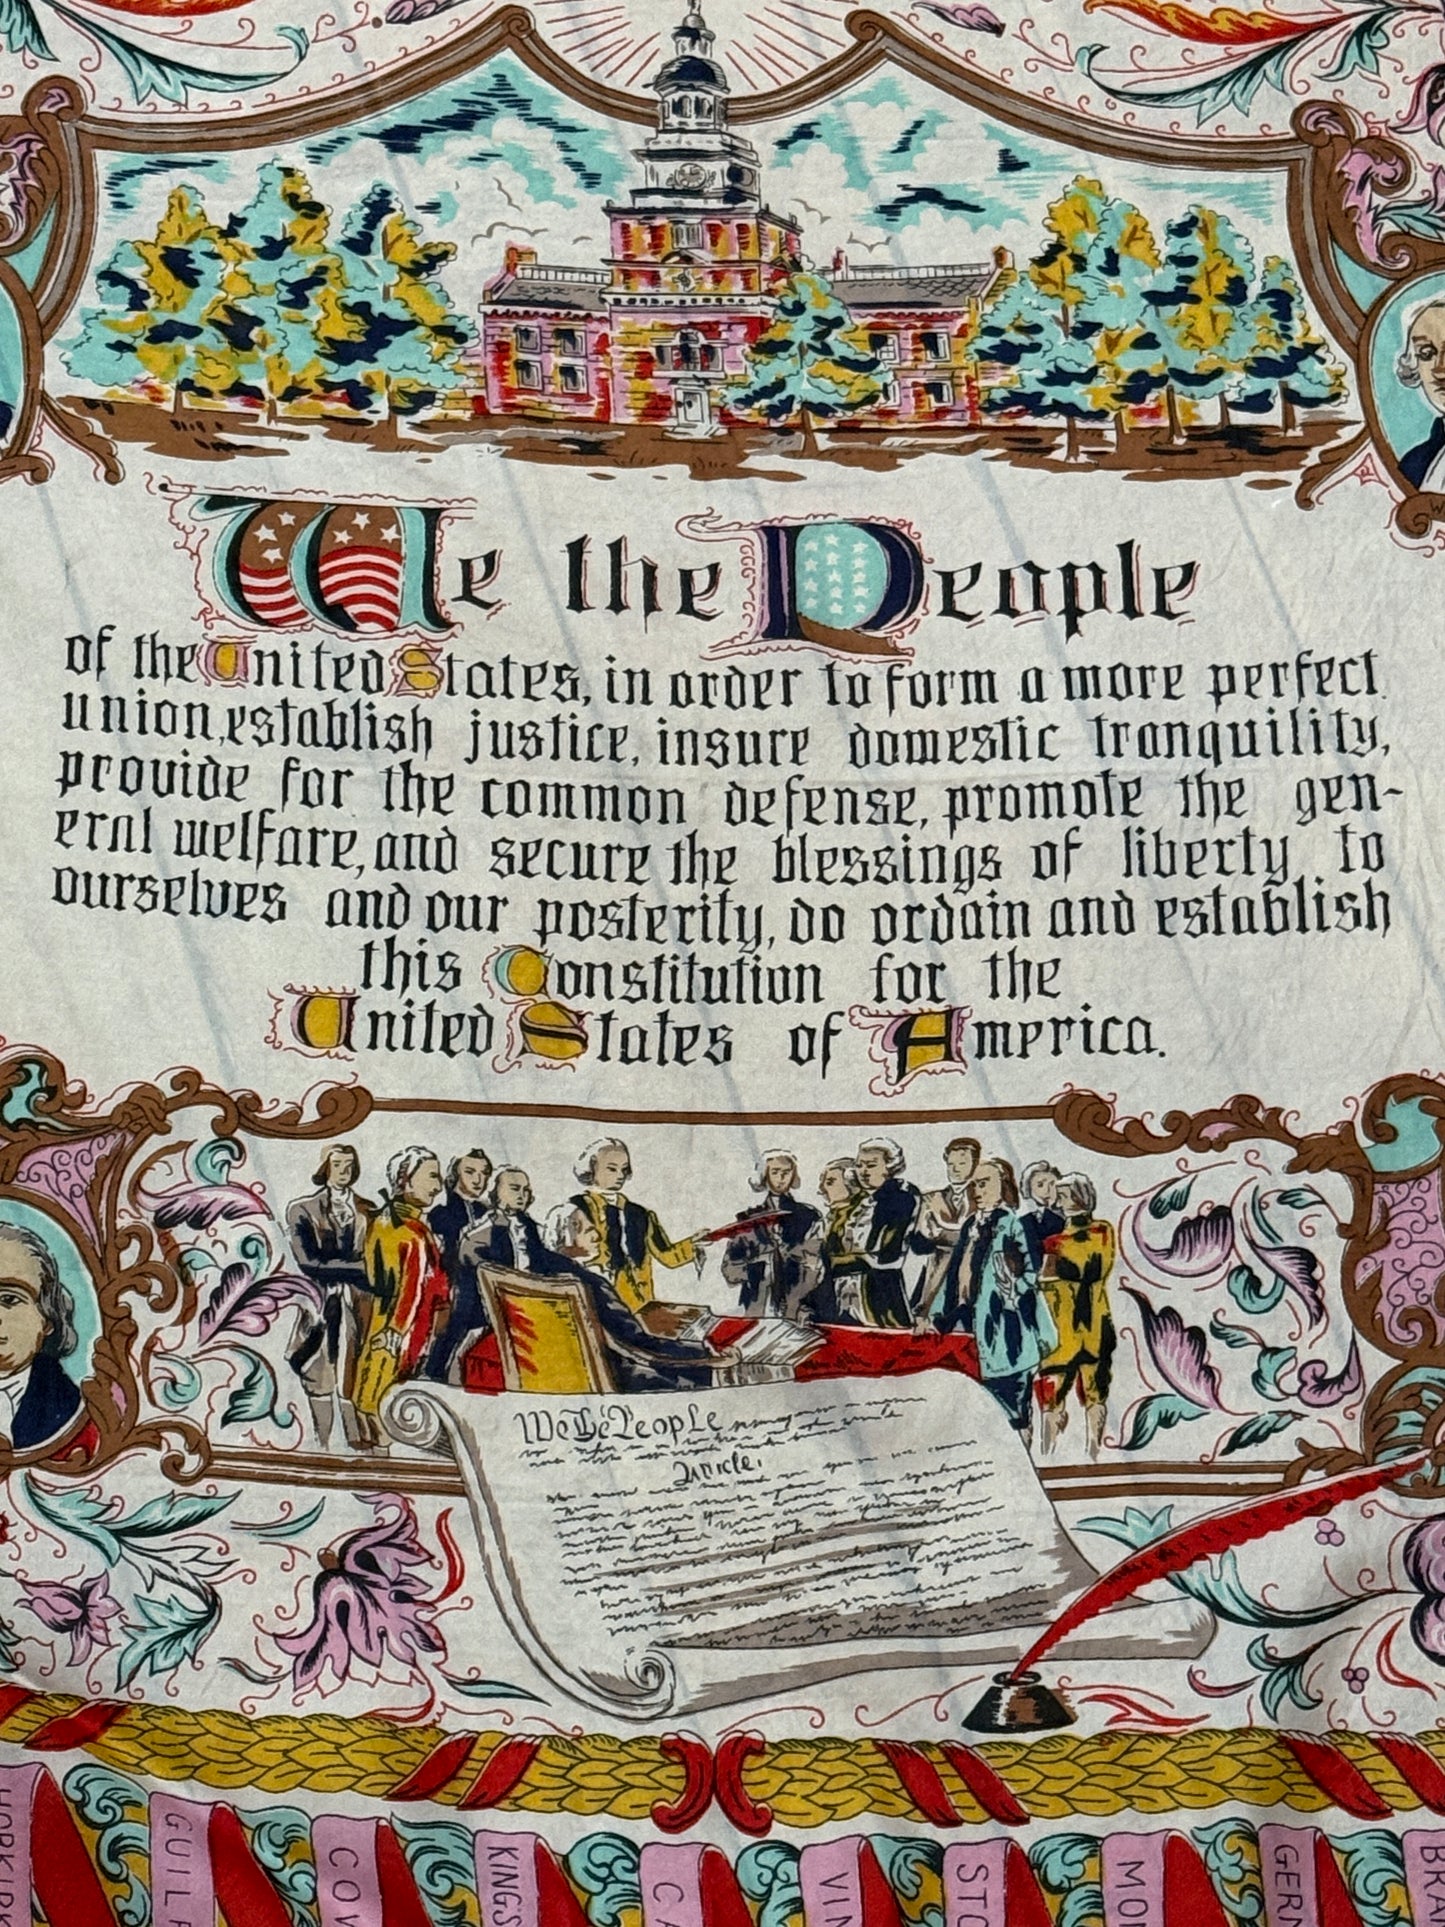 We the People
of the United States, in order to form a more perfect
union, establish justice, insure domestic tranquility,
provide for the common defense, promote the gen-
eral welfare, and secure the blessings of liberty to
ourselves and our posterity, do ordain and establish
this Constitution for the
United States of America.
We The People
Article.
KING'S